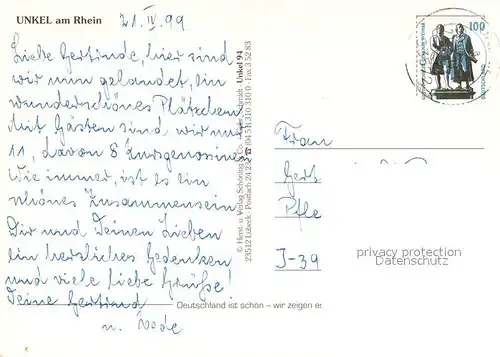 UNKEL am Rhein
21. IV. 99
Liebe Gertinde, hier sind
wir nun gelandet, ein
wunderschönes Plätzchen.
Mit Gästen sind wir nur
11, davon 8 Kursgenossinen
Wie immer, ist es ein
schönes Zusammensein.
Dir und Deinen Lieben
ein herzliches Gedenken
und viele liebe Grüße!
Deine Gertrud
u.
© Herst. u. Verlag Schöning & Co.
Schmidt - Unkel 94
23512 Lübeck · Postfach 24 23 ☎ (04 51) 310 310 · Fax 3 52 83
100
DEUTSCHLAND
Frau
Gert
J-39
privacy protection
Datenschutz
Deutschland ist schön – wir zeigen es